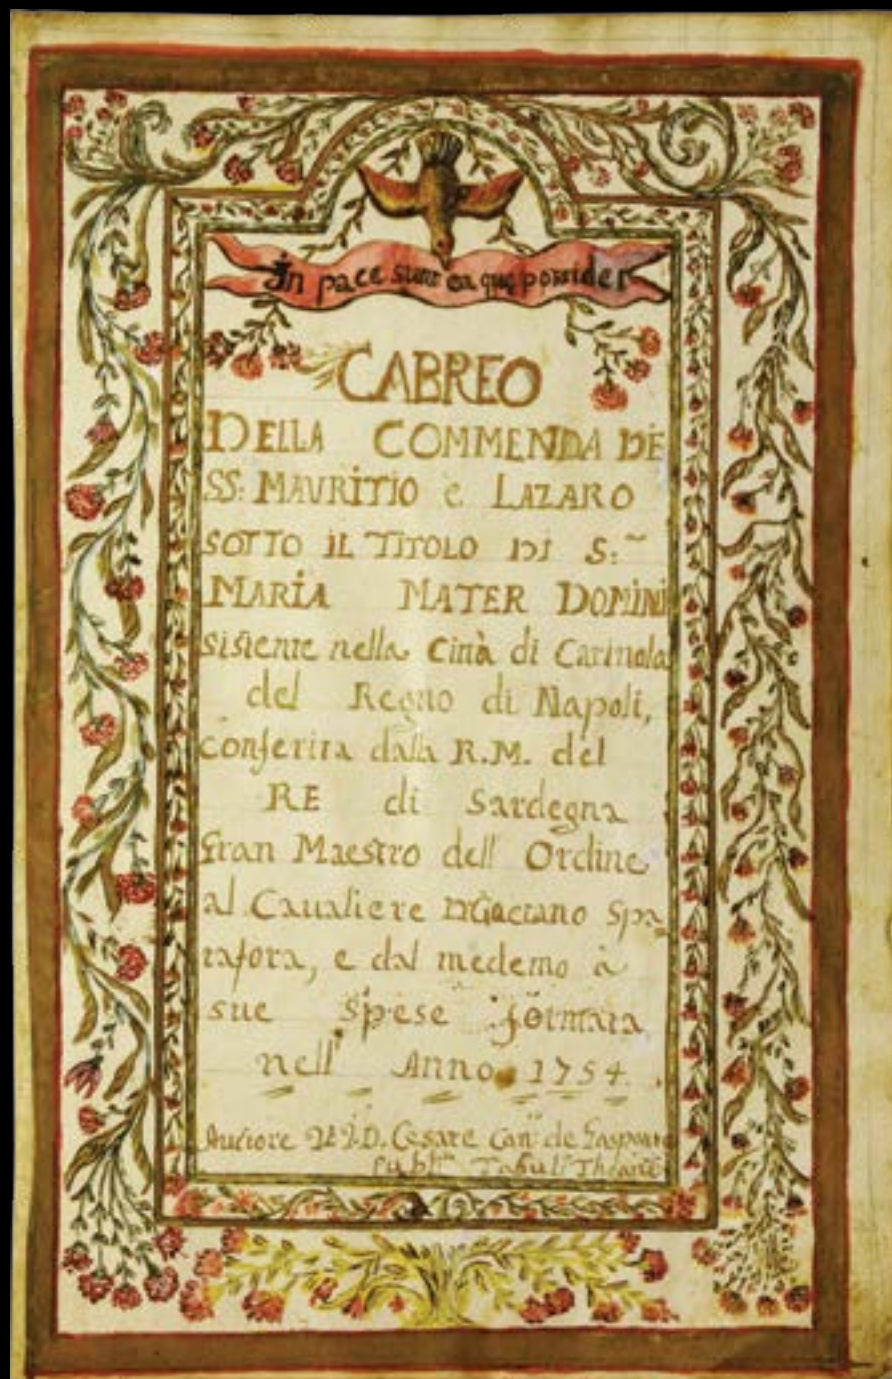 In pace sunt ea quę possidet
CABREO
DELLA COMMENDA DE
SS: MAVRITIO e LAZARO
SOTTO IL TITOLO DI S:~
MARIA MATER DOMINI
sistente nella Città di Carinola
del Regno di Napoli,
conferita dalla R.M. del
RE di Sardegna
Gran Maestro dell' Ordine
al Caualiere D. Gaetano Spa
rafora, e dal medemo à
sue Spese formata
nell' Anno 1754.
Auttore D. Cesare Can: de Gasparo
Publ: